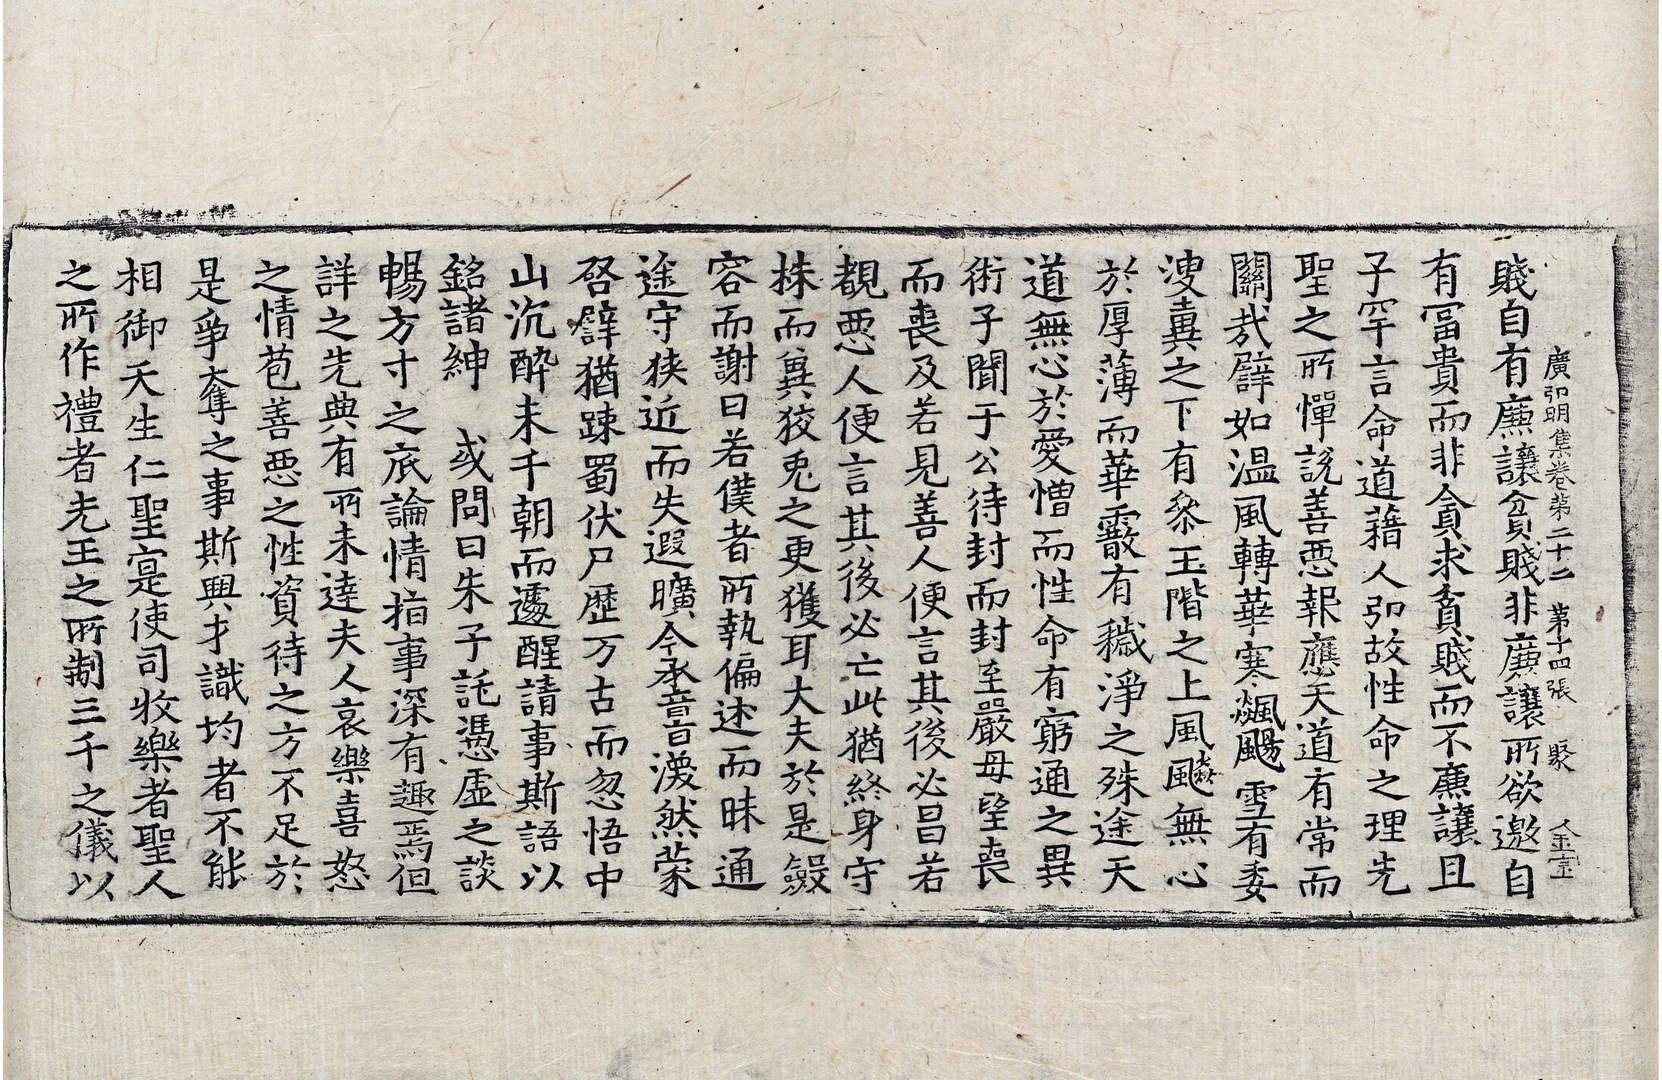 廣弘明集卷第二十二 第十四張 聚 金宝
賤自有廉讓貪賤非廉讓所欲邀自
有冨貴而非貪求貧賤而不廉讓且
子罕言命道藉人弘故性命之理先
聖之所憚說善惡報應天道有常而
關㦲譬如温風轉華寒飇颺雪有委
溲糞之下有參玉階之上風飈無心
於厚薄而華霰有穢淨之殊途天
道無心於愛憎而性命有窮通之異
術子聞于公待封而封至嚴母望喪
而喪及若見善人便言其後必昌若
覩惡人便言其後必亡此猶終身守
株而兾狡兎之更獲耳大夫於是斂
容而謝曰若僕者所執偏述而昧通
途守狹近而失遐曠今承音渙然蒙
啓譬猶踈蜀伏尸歷万古而忽悟中
山沉酔未千朝而遽醒請事斯語以
銘諸紳 或問曰朱子託憑虛之談
暢方寸之底論情指事深有趣焉但
詳之先典有所未達夫人哀樂喜怒
之情苞善惡之性資待之方不足於
是爭奪之事斯興才識均者不能
相御天生仁聖寔使司牧樂者聖人
之所作禮者先王之所制三千之儀以